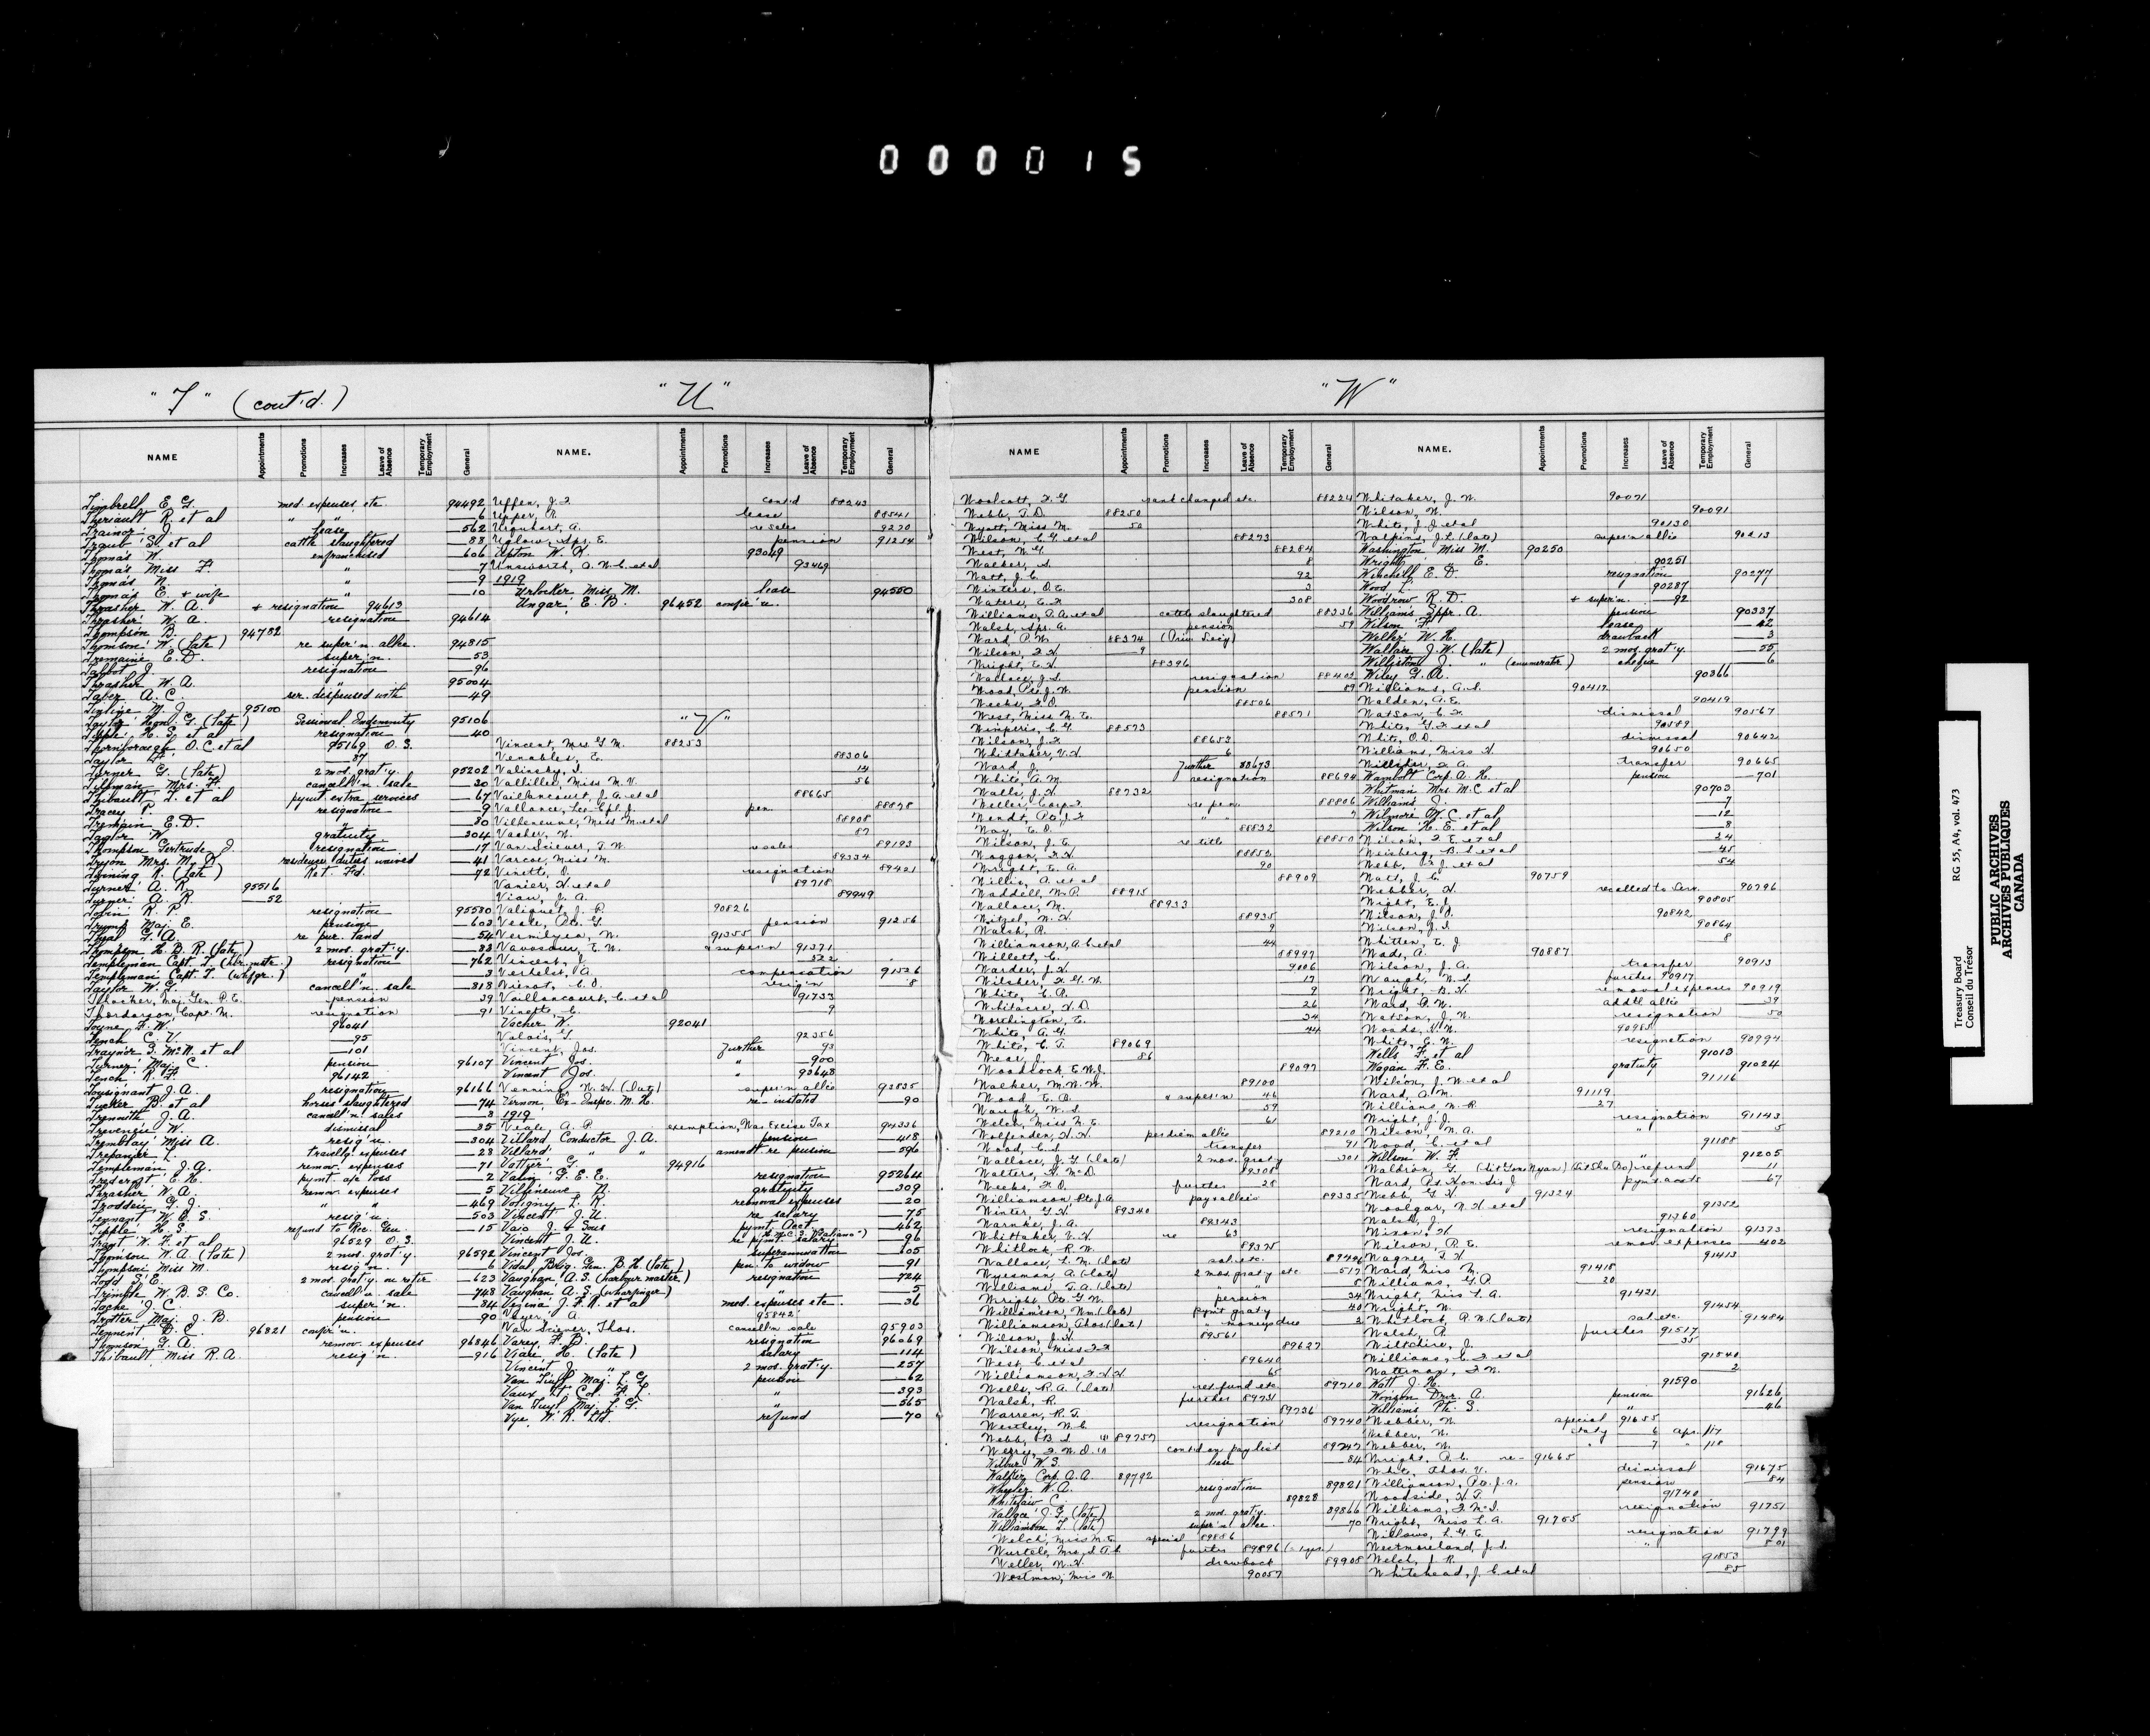 000015
"T" (cont'd.)
"U"
NAME Appointments Promotions Increases Leave of Absence Temporary Employment General
NAME. Appointments Promotions Increases Leave of Absence Temporary Employment General
Timbrell E. G. med. expenses, etc. 94492
Theriault R. et al " 6
Trainor J. lease 562
Traub S. et al cattle slaughtered 88
Thomas W. enfranchised 606
Thomas Miss F. " 7
Thomas N. " 9
Thomas E. & wife " 10
Thrasher W. A. + resignation 94613
Thrasher W. A. resignation 94614
Thompson B. 94782
Thomson W. (late) re super'n allce. 94815
Tremaine E. D. super'n. 53
Talbot J. resignation 96
Thrasher W. A. 95004
Taber A. C. ser. dispensed with 49
95100
Taylor Hon. G. (late) Sessional Indemnity 95106
Tipple H. S. et al resignation 40
Thornborough, O. C. et al 95169 O.S.
Taylor F. 87
Turner G. (late) 2 mos. grat'y. 95202
Tillman Mrs. F. cancell'n sale 30
Thibault T. et al pymt extra services 67
Tracey P. resignation 9
Tremain E. D. " 80
Taylor W. gratuity 304
Thompson Gertrude J. resignation 17
Tryon Mrs. M. R. residence duties waived 41
Twining R. (late) Ret. Fd. 72
Turner A. R. 95516
Turner A. R. 52
Tobin R. P. resignation 95580
Trump Maj. E. pension 603
Tyal G. A. re pur. land 54
Thompson H. B. R. (late) 2 mos. grat'y. 83
Templeman Capt. T. (hbr. mstr.) resignation 762
Templeman Capt. T. (whfgr.) " 3
Taylor W. G. cancell'n. sale 818
Thacker, Maj. Gen. P. E. pension 39
Thordarson, Capt. M. resignation 91
Toyne, F. W. 96041
Tench C. V. 95
Traynor G. McN. et al 101
Turner Maj. C. pension 96107
Tench R. F. 96142
Tousignant J. A. resignation 96166
Tucker B. et al horses slaughtered 74
Trennith J. A. cancell'n sales 8
Trevenie W. dismissal 35
Tremblay Miss A. resig'n. 304
Trepanier L. travell'g expenses 28
Templeman J. A. remov. expenses 71
pymt a/c loss 2
Thrasher W. A. remov. expenses 5
" " 469
Tennant W. O. S. resig'n. 503
Tipple H. S. refund to Rec. Gen. 15
Trant W. F. et al 96529 O.S.
Thomson W. A. (late) 2 mos. grat'y 96592
Thompson Miss M. resig'n. 6
Todd S. E. 2 mos. grat'y. on retir. 623
Trimble W. B. S. Co. cancell'n sale 748
Tache J. C. super'n. 84
Trotter Maj. J. B. pension 90
Tennent D. C. 96821 confir'n.
Thomson G. A. remov. expenses 96846
Thibault Miss R. A. resig'n. 916
Uffen, J. F. cont'd 88243
Upper, R. lease 88541
Urquhart, A. re sales 9270
Uglow, Spr. E. pension 91254
Upton W. R. 93069
Unsworth, A. N. C. et al 93469
1919
Urlocker Miss M. lease 94550
Ungar, E. B. 96452 confir'n.
"V"
Vincent, Mrs. G. M. 88253
Venables, E. 88306
Valinsky, I. 14
Valiller, Miss M. V. 56
Vaillancourt, J. A. et al 88665
Vallance, Lce. Cpl. J. pen. 88878
Villeneuve, Miss M. et al 88908
Vacher, N. 87
Van Sciever, T. W. re sales 89193
Varcoe, Miss M. 89334
Vinette, O. resignation 89421
Vanier, H. et al 89718
Viau, J. A. 89949
Valiquet, J. P. 90826
Veale, Pte. G. pension 91256
Vermilyea, N. 91355
Vavasour, E. N. & super'n 91371
Vincent, J. 522
Verhelst, A. compensation 91526
Vienot, C. O. resig'n 8
Vaillancourt, C. et al 91733
Vinette, C. 9
Vacher W. 92041
Valois, T. 92356
Vincent, Jos. Further 93
Vincent Jos. " 900
Vincent Jos. " 93648
Venning, N. H. (late) super'n allce 93835
Vernon, Ex-Inspr. M. H. re-instated 90
1919
Veale, A. P. exemption, War Excise Tax 94336
Villard Conductor J. A. pension 418
Villard " " amendt re pension 596
Vattier G. 94916
Valin G. E. E. resignation 95264
Villeneuve N. gratuity 309
Voligny L. R. removal expenses 20
Vincent J. U. re salary 75
Vaio J. & Sons pymt. Acct. 462
Vincent J. U. re pymt salary 96
Vincent Jos. Superannuation 105
Vidal, Brig. Gen. B. H. (late) pen. to widow 91
Vaughan, A. S. (harbour master) resignation 724
Vaughan A. S. (wharfinger) " 5
Vezina J. F. R. et al med. expenses etc. 36
Veyer, A. 95842
Van Sciever, Thos. cancell'n sale 95903
Varey F. D. resignation 96069
Viau H. (late) salary 114
Vincent J. " 2 mos. grat'y. 257
Van Tuyl Maj. L. G. pension 62
Vaux, Lt. Col. F. L. " 393
Van Tuyl Maj. L. G. " 565
Vye, W. R. Ltd. refund 70
"W"
NAME Appointments Promotions Increases Leave of Absence Temporary Employment General
NAME. Appointments Promotions Increases Leave of Absence Temporary Employment General
Woolcott, F. G. rank changed etc. 88224
Webb, T. D. 88250
Wyatt, Miss M. 50
Wilson, C. G. et al 88273
West, W. G. 88284
Walker, S. 8
Watt, J. C. 92
Winters, O. E. 3
Waters, E. F. 308
Williams, A. A. et al cattle slaughtered 88336
Walsh, Spr. A. pension 59
Ward P. W. 88374 (Priv. Secy)
Wilson, F. H. 9
Wright, E. H. 88396
Wallace, J. S. resignation 88403
Wood, Pte. J. W. pension 89
Weeks, F. O. 88506
West, Miss M. E. 88571
Wimperis, C. G. 88573
Wilson, J. F. 88653
Whittaker, V. H. 6
Ward J. Further 88673
White, A. M. resignation 88694
Walls, J. H. 88732
Weller, Corp. F. re pen. 88806
Wendt, Pte. J. F. " " 7
Way, E. O. 88832
Wilson, J. E. re title 88850
Waggon, F. H. 88852
Wright, E. A. 90
Willis, A. et al 88909
Waddell, W. P. 88915
Wallace, M. 88933
Witzel, W. H. 88935
Walsh, R. 9
Williamson, A. C. et al 44
Willett, C. 88997
Warder, J. H. 9006
Wilsher, F. G. W. 17
White, C. A. 9
Whitacre, H. D. 26
Worthington, E. 34
White, A. G. 44
White, C. T. 89069
Wear, J. 86
Woodlock, E. W. J. 89097
Walker, M. W. W. 89100
Wood E. O. & super'n 46
Waugh, W. S. 59
Welch, Miss M. E. 61
Wolfenden, H. H. per diem allce 89210
Wood, C. S. transfer 91
Wallace, J. G. (late) 2 mos. graty 301
Walters, H. McD. 89308
Weeks, F. O. further 28
Williamson Pte. J. A. pay & allces 89335
Winter, G. H. 89340
Warnke, J. A. 89343
Whittaker, V. H. re 63
Whitlock, R. W. 89375
Wallace, L. M. (late) sal. etc. 89496
Wyssman, A. (late) 2 mos. graty etc 517
Williams, T. A. (late) " 8
Wright, Pte. G. N. pension 34
Williamson, Wm. (late) pymt graty 40
Williamson, Thos. (late) " moneys due 2
Wilson, J. H. 89561
Wilson, Miss F. F. 89627
West, C. et al 89640
Williamson, F. H. H. 65
Wells, R. A. (late) ret. fund etc. 89710
Walsh, R. further 89731
Warren, R. T. 89736
Westley, W. C. resignation 89740
Webb, B. S. 89757
Werry, F. W. O. cont'd on pay list 89747
Wilbur W. S. lease 84
Walker Corp. A. A. 89792
Whyley W. A. resignation 89821
Whitelaw C. 89828
Wallace J. G. (late) 2 mos. grat'y. 89866
Williamson T. (late) super'n allce. 70
Welch, Miss M. E. special 89886
Wurtele, Mrs. S. A. C. further 89896 (-1 yr.)
Weller, W. H. drawback 89908
Westman, Miss N. 90057
Whitaker, J. W. 90071
Wilson, N. 90091
White, J. J. et al 90130
Watkins, J. L. (late) super'n allce 90213
Washington Miss M. 90250
Wright " E. 90251
Winchell E. D. resignation 90277
Wood L. 90287
Woodrow R. D. + super'n. 92
Williams Sppr. A. pension 90337
Wilson F. lease 42
Welley W. H. drawback 3
Wallace J. W. (late) 2 mos. grat'y. 55
Williston J. " (enumerator) cheque 6
Wiley G. A. 90366
Williams, A. S. 90417
Walden, A. E. 90419
Watson, C. F. dismissal 90567
White, G. F. et al 90589
White, O. D. dismissal 90642
Williams, Miss H. 90650
Williston, F. A. transfer 90665
Wambolt Corp. A. H. pension 701
Whitman Mrs. M. C. et al 90703
Williams J. 7
Wilmore W. C. et al 12
Wilson H. E. et al 8
Wilson, F. E. et al 24
Weisberg, B. L. et al 45
Webb, F. J. et al 54
Watt, J. C. 90759
Webber, H. recalled to Serv. 90796
Wight, E. J. 90805
Wilson, J. O. 90842
Wilson, J. S. 90864
Whitten, E. J. 8
Wade, A. 90887
Wilson, J. A. transfer 90913
Waugh, W. S. further 90917
Wright, B. H. removal expenses 90919
Ward, P. W. addtl allce 39
Watson, J. W. resignation 50
Woods, N. N. 90985
White, C. W. resignation 90994
Wells F. et al 91013
Wagan F. E. gratuity 91024
Wilson, J. W. et al 91116
Ward, A. M. 91119
Williams, W. R. 27
Wright, J. J. resignation 91143
Wilson, W. A. " 5
Wood, C. et al 91188
Willson W. F. " 91205
Waldron, G. refund 11
Ward, Rt. Hon. Sir J. pymt costs 67
Webb, G. H. 91324
Woolgar, W. H. et al 91352
Walsh, J. 91360
Nixon, H. resignation 91373
Wilson, R. E. remov. expenses 402
Wagner, F. H. 91413
Ward, Miss M. 91418
Williams, G. A. 20
Wright, Miss L. A. 91421
Wright, W. 91454
Whitlock, R. W. (late) sal. etc. 91484
Walsh, R. further 91517
Wiltshire, J. 35
Williams, E. F. et al 91540
Watterman, F. W. 2
Watt J. H. 91590
Wonson Drvr. A. pension 91626
Williams Pte. S. " 46
Webber, W. special 91655
Webber, W. duty 6 Apr. /17
Webber, W. " 7 " /18
Wright, R. C. re- 91665
White, Thos. V. dismissal 91675
Williamson, Pte. J. A. pension 84
Woodside, H. T. 91740
Williams, F. McD. resignation 91751
Wright, Miss L. A. 91755
Willows, L. G. E. resignation 91799
Westmoreland, J. S. " 801
Welch, J. R. 91853
Whitehead, J. C. et al 85
Treasury Board RG 55, A4, vol. 473
Conseil du Trésor
PUBLIC ARCHIVES
ARCHIVES PUBLIQUES
CANADA